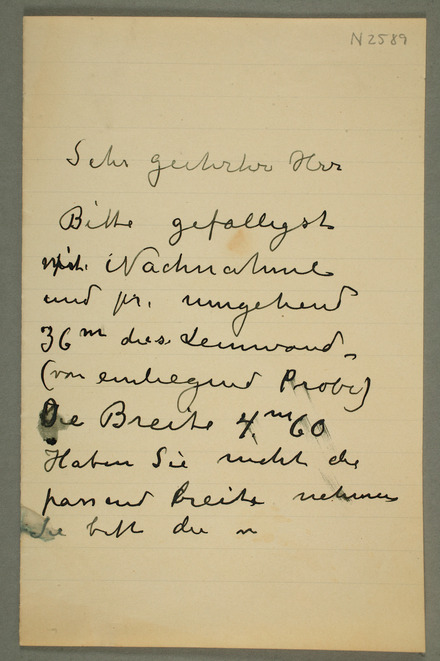 N 2589
Sehr geehrter Herr
Bitte gefälligst
mit. Nachnahme
und pr. umgehend
36 m dies. Leinwand
(von einliegend Probe)
Die Breite 4. m 60
Haben Sie nicht die
passend Breite nehmen
Sie bitt die n